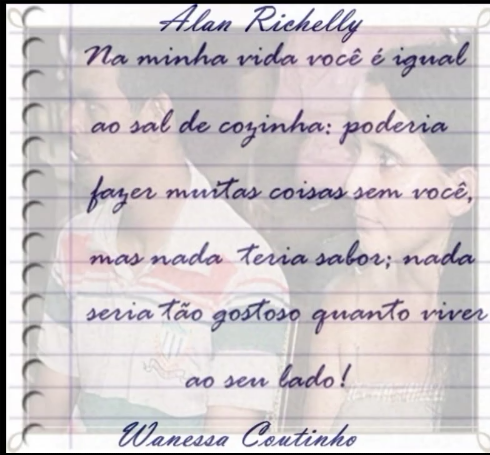 Alan Richelly
Na minha vida você é igual
ao sal de cozinha: poderia
fazer muitas coisas sem você,
mas nada teria sabor; nada
seria tão gostoso quanto viver
ao seu lado!
Wanessa Coutinho